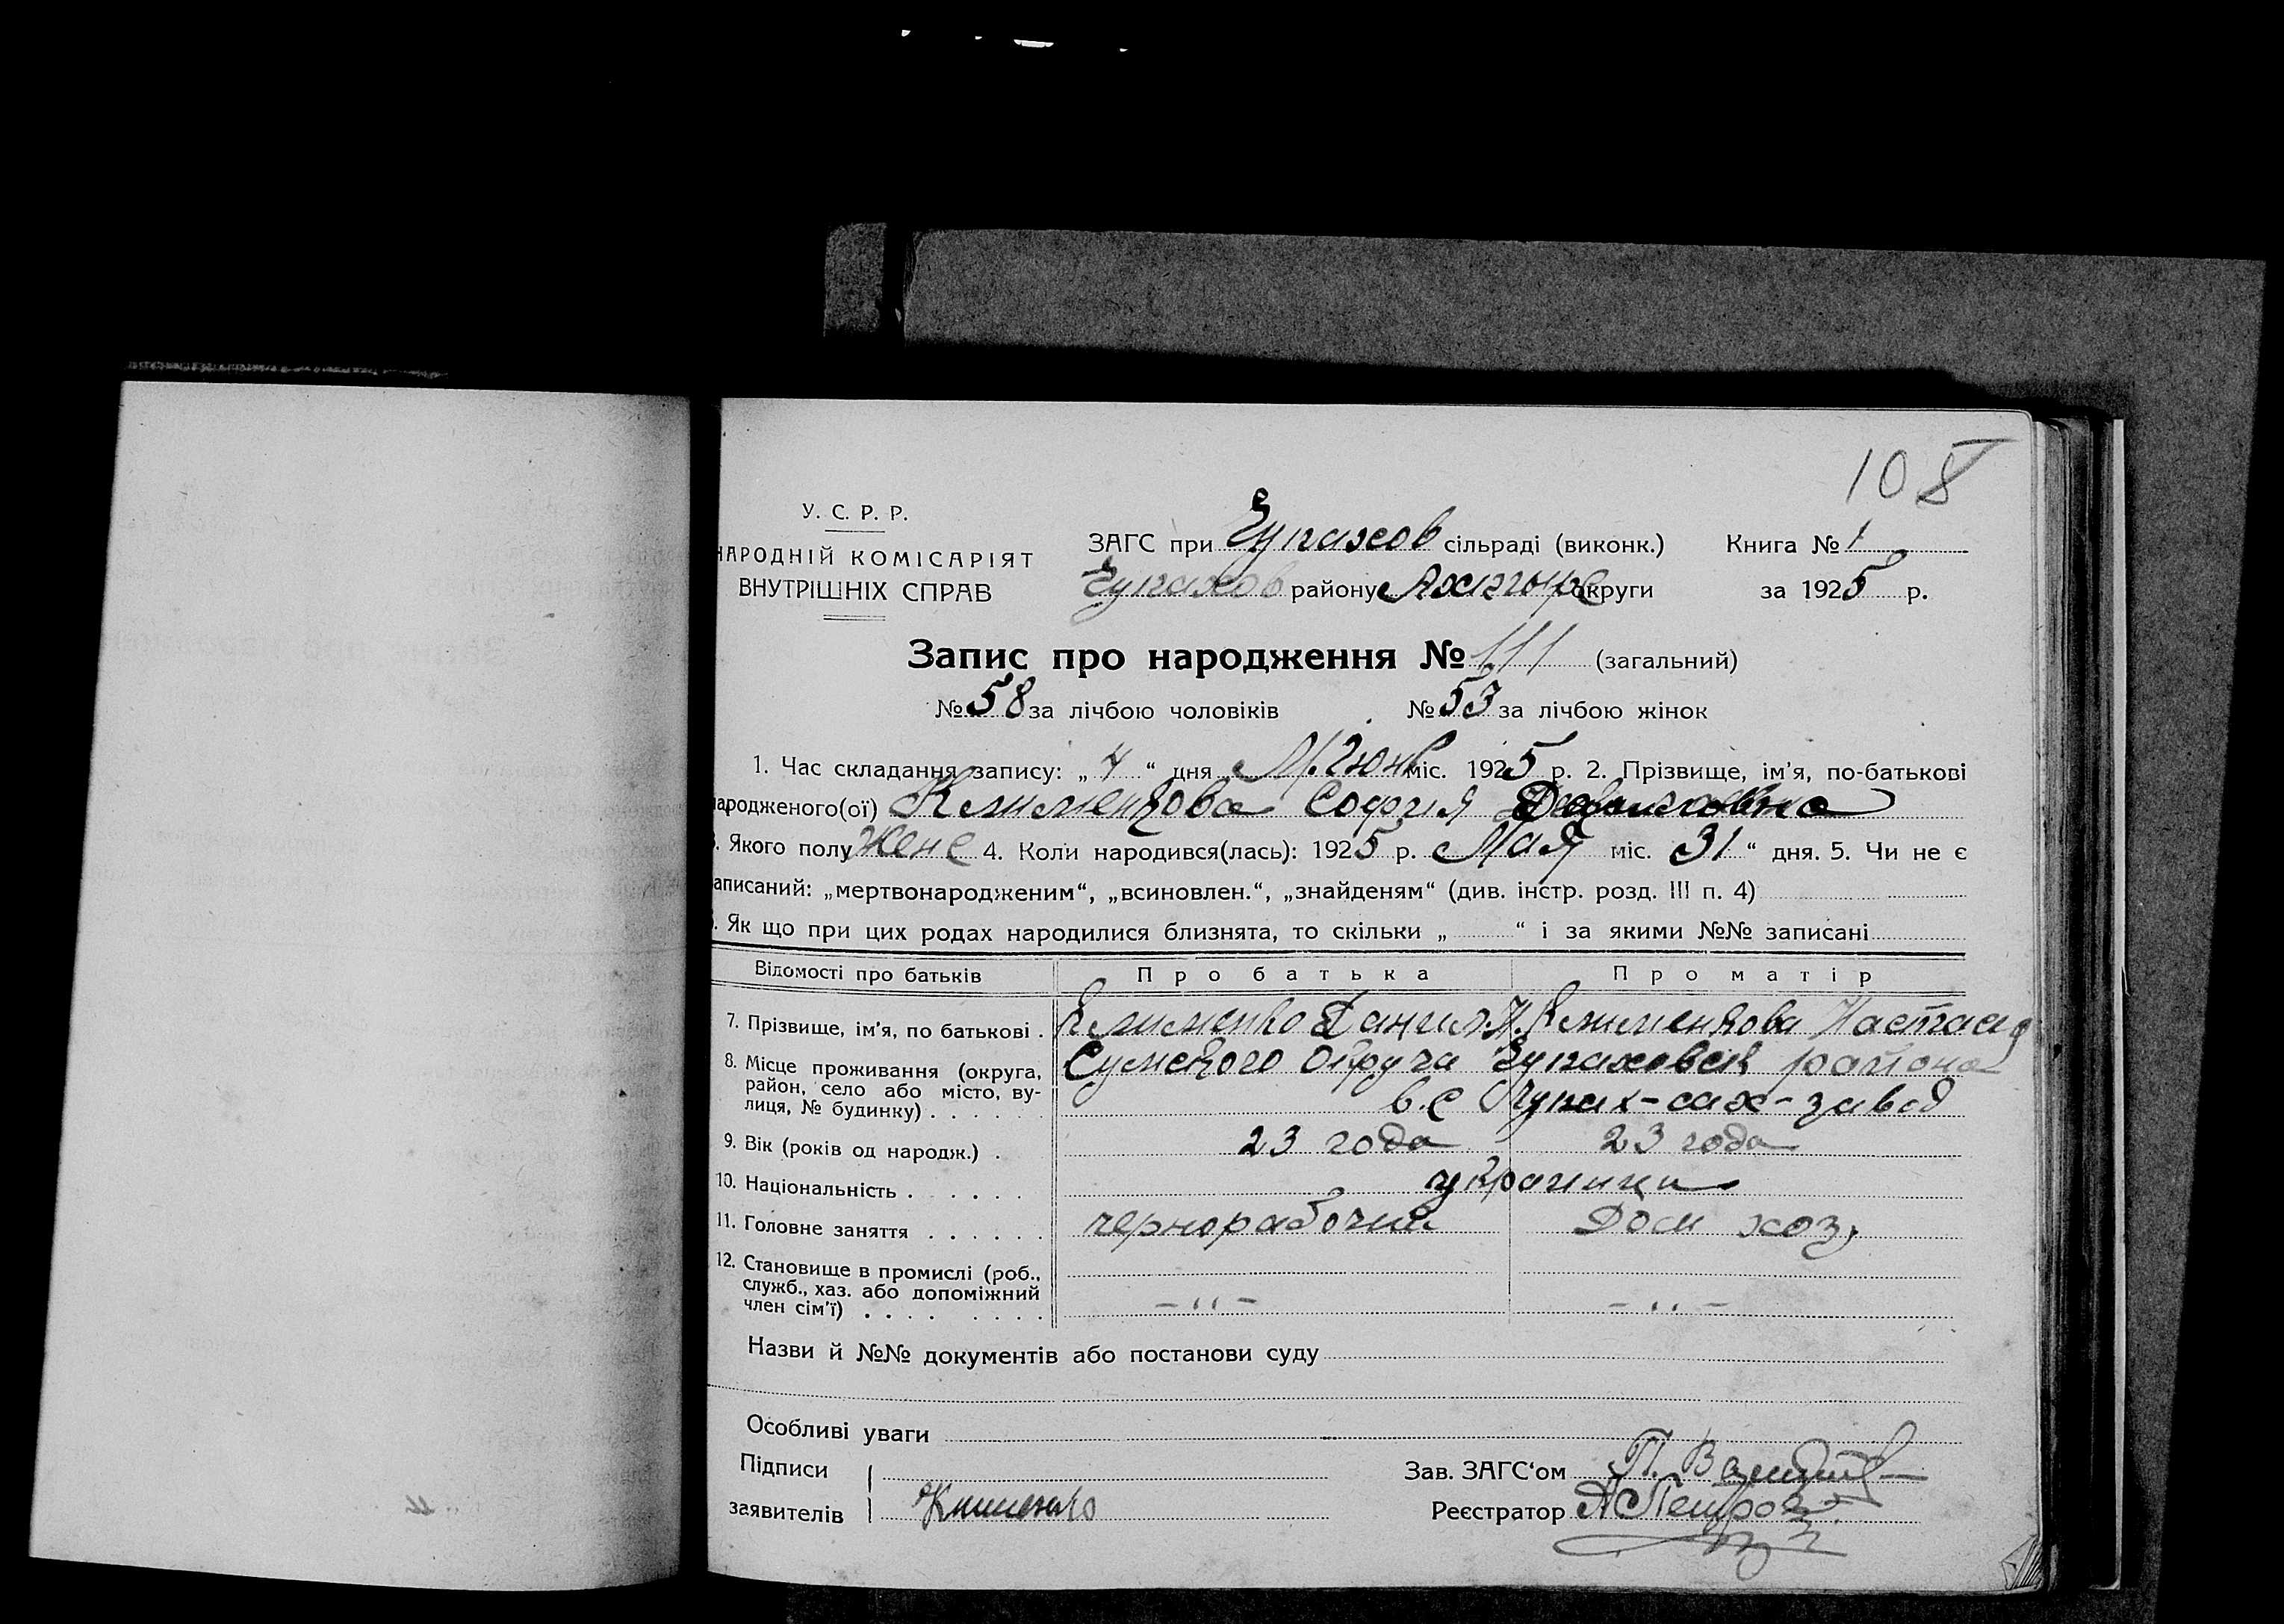 108
У. С. Р. Р.
НАРОДНІЙ КОМІСАРІЯТ
ВНУТРІШНІХ СПРАВ
ЗАГС при Чупахов сільраді (виконк.) Книга № 1
Чупахов району Ахтыр округи за 1925 р.
Запис про народження № 111 (загальний)
№ 58 за лічбою чоловіків № 53 за лічбою жінок
1. Час складання запису: „ 4 “ дня міс. 1925 р. 2. Прізвище, ім'я, по-батькові
ародженого(ої) Клименкова София Даниловна
3. Якого полу жене 4. Коли народився(лась): 1925 р. Мая міс. 31 “ дня. 5. Чи не є
аписаний: „мертвонародженим“, „всиновлен.“, „знайденям“ (див. інстр. розд. III п. 4)
6. Як що при цих родах народилися близнята, то скільки „ “ і за якими №№ записані
Відомості про батьків Про батька Про матір
7. Прізвище, ім'я, по батькові . Клименко Данил. Клименкова Настасия
8. Місце проживання (округа, Сумского округа Чупаховск района
район, село або місто, ву-
лиця, № будинку) . . . . . в.с Чупах-сах-завод
9. Вік (років од народж.) . 23 года 23 года
10. Національність . . . . . . украинци
11. Головне заняття . . . . . . чернорабочий Дом хоз.
12. Становище в промислі (роб.,
служб., хаз. або допоміжний
член сім'ї) . . . . . . . . - „ - - „ -
Назви й №№ документів або постанови суду
Особливі уваги
Підписи Зав. ЗАГС‘ом П.
заявителів Клименко Реєстратор